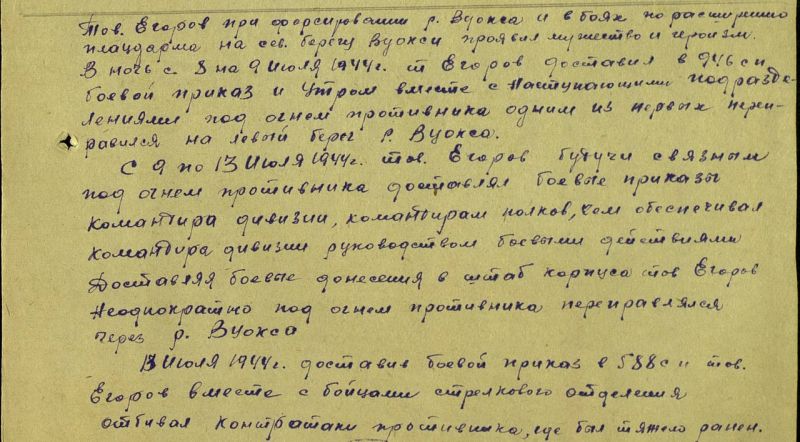 Тов. Егоров при форсировании р. Вуокса и в боях по расширению
плацдарма на сев. берегу Вуокси проявил мужество и героизм.
В ночь с 8 на 9 Июля 1944г. т Егоров доставил в 946 сп
боевой приказ и Утром вместе с Наступающими подразде-
лениями под огнем противника одним из первых пере-
правился на левый берег р. Вуокса.
С 9 по 13 Июля 1944г. тов. Егоров будучи связным
под огнем противника доставлял боевые приказы
командира дивизии, командирам полков, чем обеспечивал
командира дивизии руководством боевыми действиями
Доставляя боевые донесения в штаб корпуса тов Егоров
Неоднократно под огнем противника переправлялся
через р. Вуокса
13 Июля 1944г. доставив боевой приказ в 588 сп тов.
Егоров вместе с бойцами стрелкового отделения
отбивал контратаки противника, где был тяжело ранен.